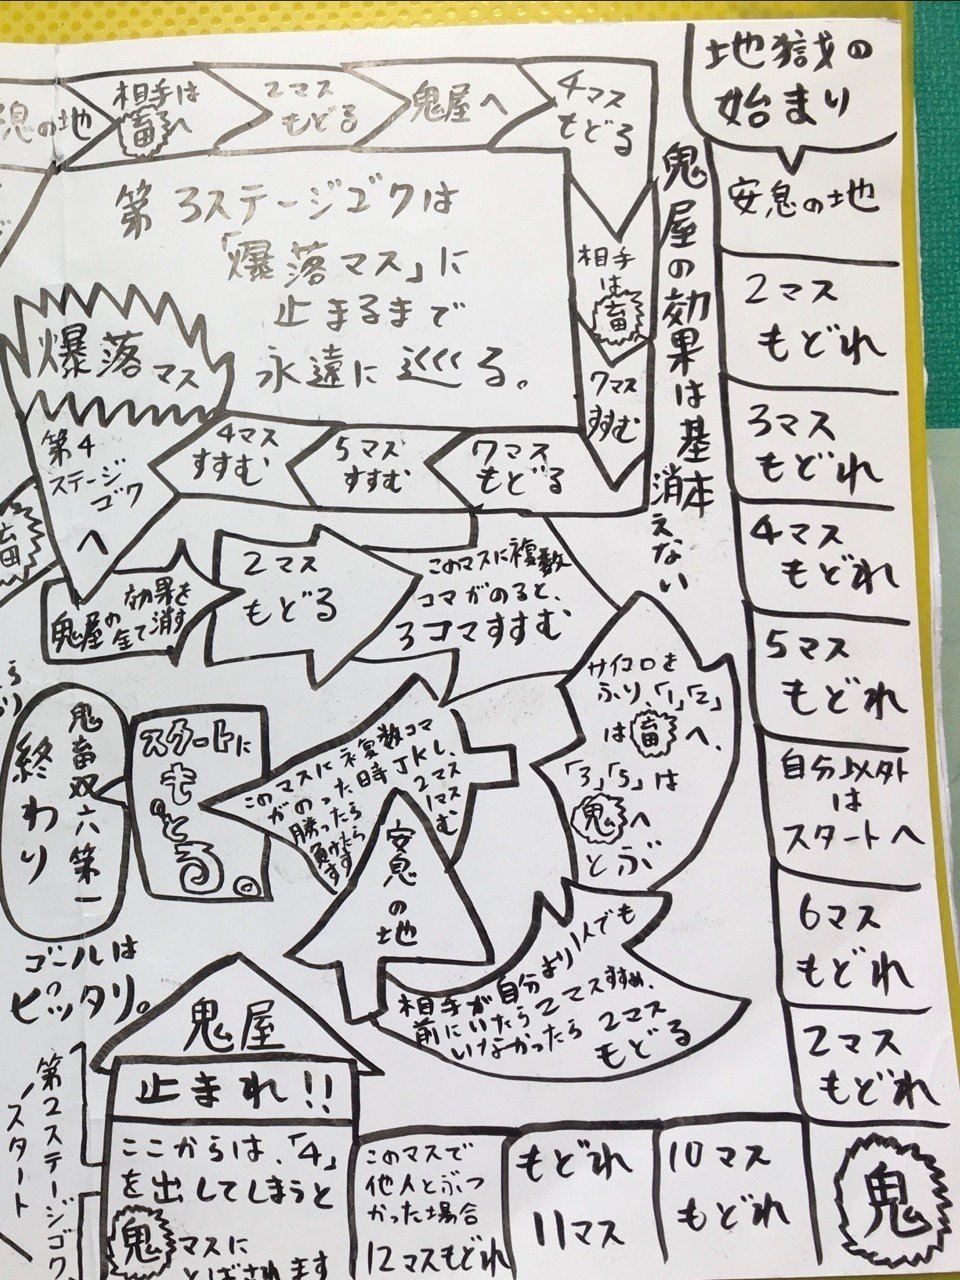 地獄の
始まり
安息の地
2マス
もどれ
3マス
もどれ
4マス
もどれ
5マス
もどれ
自分以外
は
スタートへ
6マス
もどれ
2マス
もどれ
鬼
10マス
もどれ
もどれ
11マス
このマスで
他人とぶつ
かった場合
12マスもどれ
鬼屋
止まれ!!
ここからは、「4」
を出してしまうと
鬼マスに
とばされます
相手が自分より1人でも
前にいたら2マスすすめ、
いなかったら2マス
もどる
サイコロを
ふり、「1」「2」
は畜へ、
「3」「5」は
鬼へ
とぶ
安息
の
地
このマスに複数コマ
がのった時JKし、
勝ったら2マス
負けたら1マス
すすむ
スタートに
もどる。
鬼畜双六第一
終わり
ゴールは
ピッタリ。
第2ステージゴク
スタート
このマスに複数
コマがのると、
3コマすすむ
2マス
もどる
鬼屋の効果を
全て消す
鬼屋の効果は基本
消えない
息の地
相手は
畜へ
2マス
もどる
鬼屋へ
4マス
もどる
相手
は
畜
7マス
すすむ
7マス
もどる
5マス
すすむ
4マス
すすむ
第3ステージゴクは
「爆落マス」に
止まるまで
永遠に巡る。
爆落マス
第4
ステージ
ゴク
へ
畜